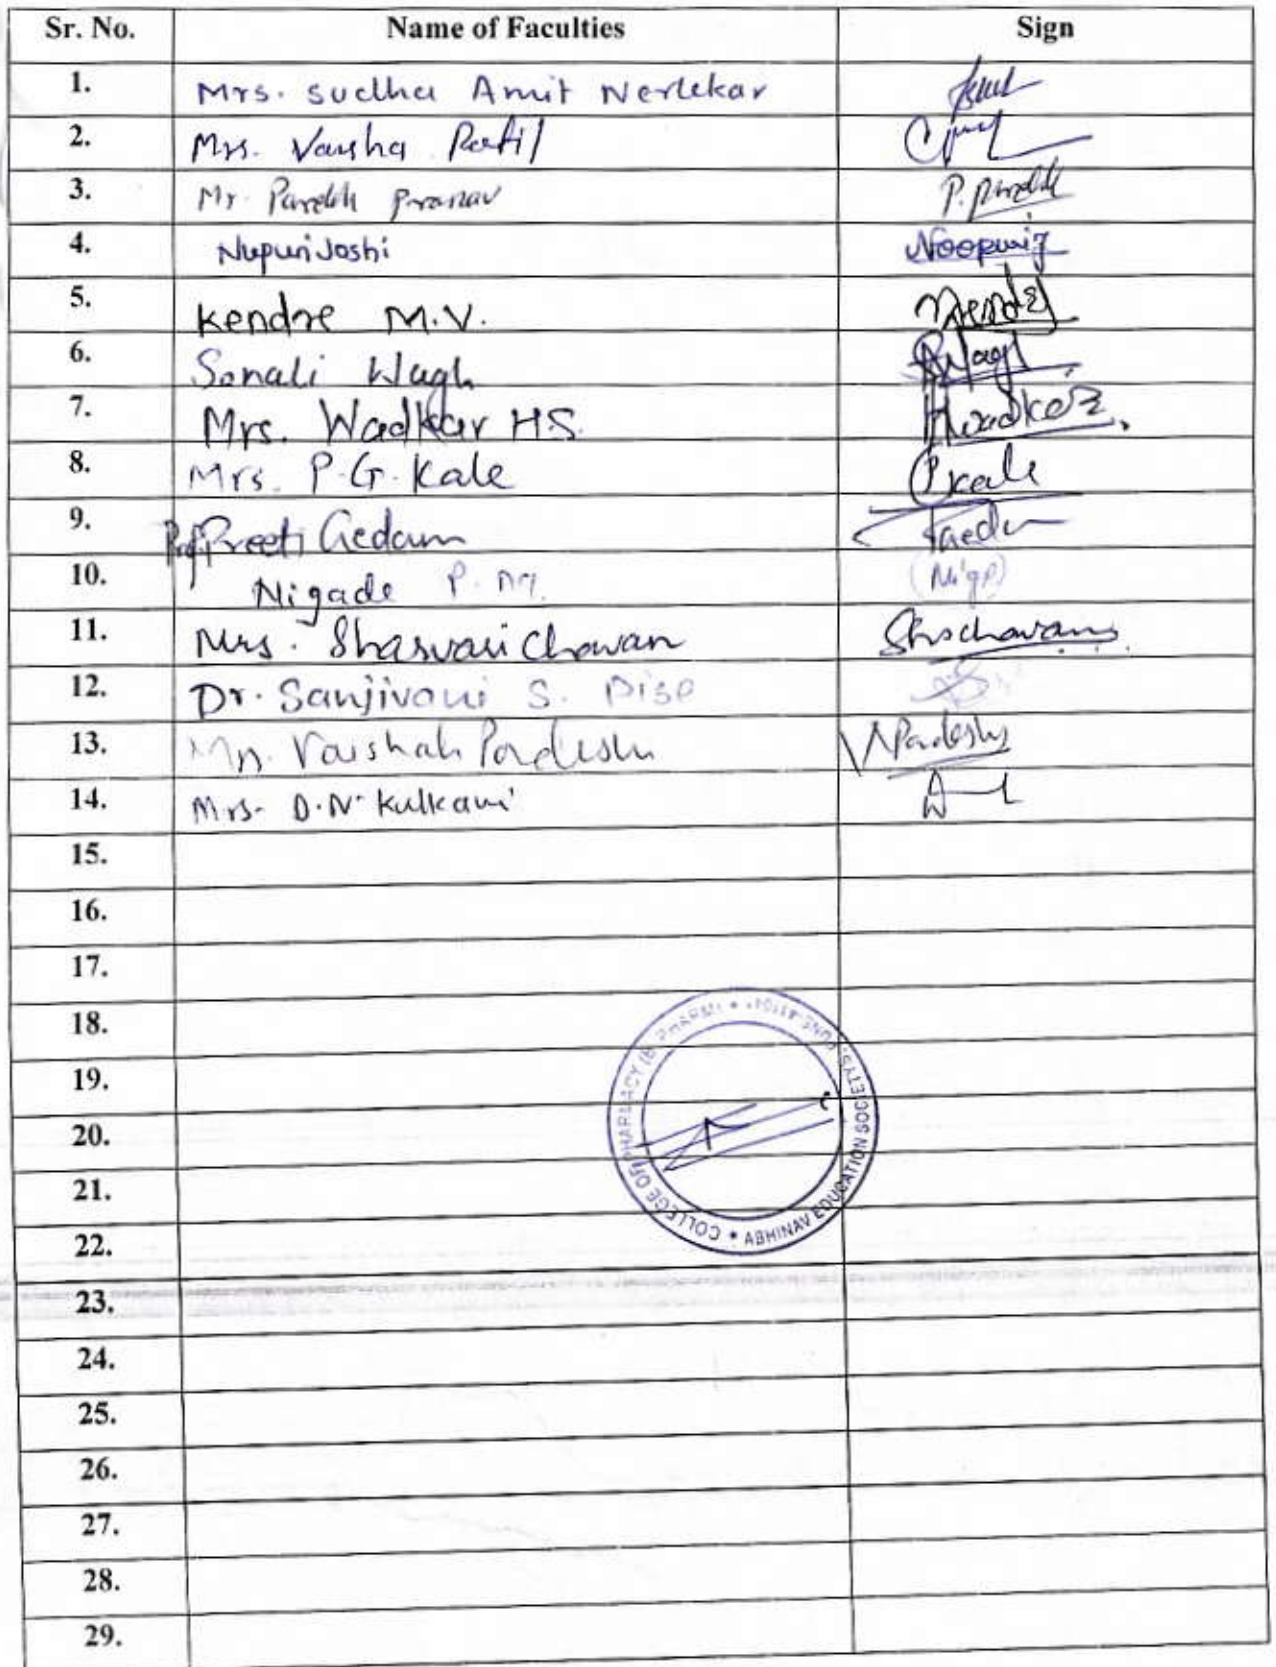 Sr. No. Name of Faculties Sign
1. Mrs. Sudha Amit Nerlekar
2. Mrs. Varsha Patil
3. Mr. Parekh Pranav P. Parekh
4. Nupuri Joshi Noopurij
5. Kendre M.V.
6. Sonali Wagh
7. Mrs. Wadkar H S.
8. Mrs. P.G. Kale PKale
9. Prof. Preeti Gedam
10. Nigade P. M.
11. Mrs. Sharvari Chavan
12. Dr. Sanjivani S. Dise
13. Vaishali Pardeshi
14. Mrs. D.N. Kulkarni
15.
16.
17.
18.
19.
20.
21.
22.
23.
24.
25.
26.
27.
28.
29.
ABHINAV EDUCATION SOCIETY'S COLLEGE OF PHARMACY (B. PHARM)